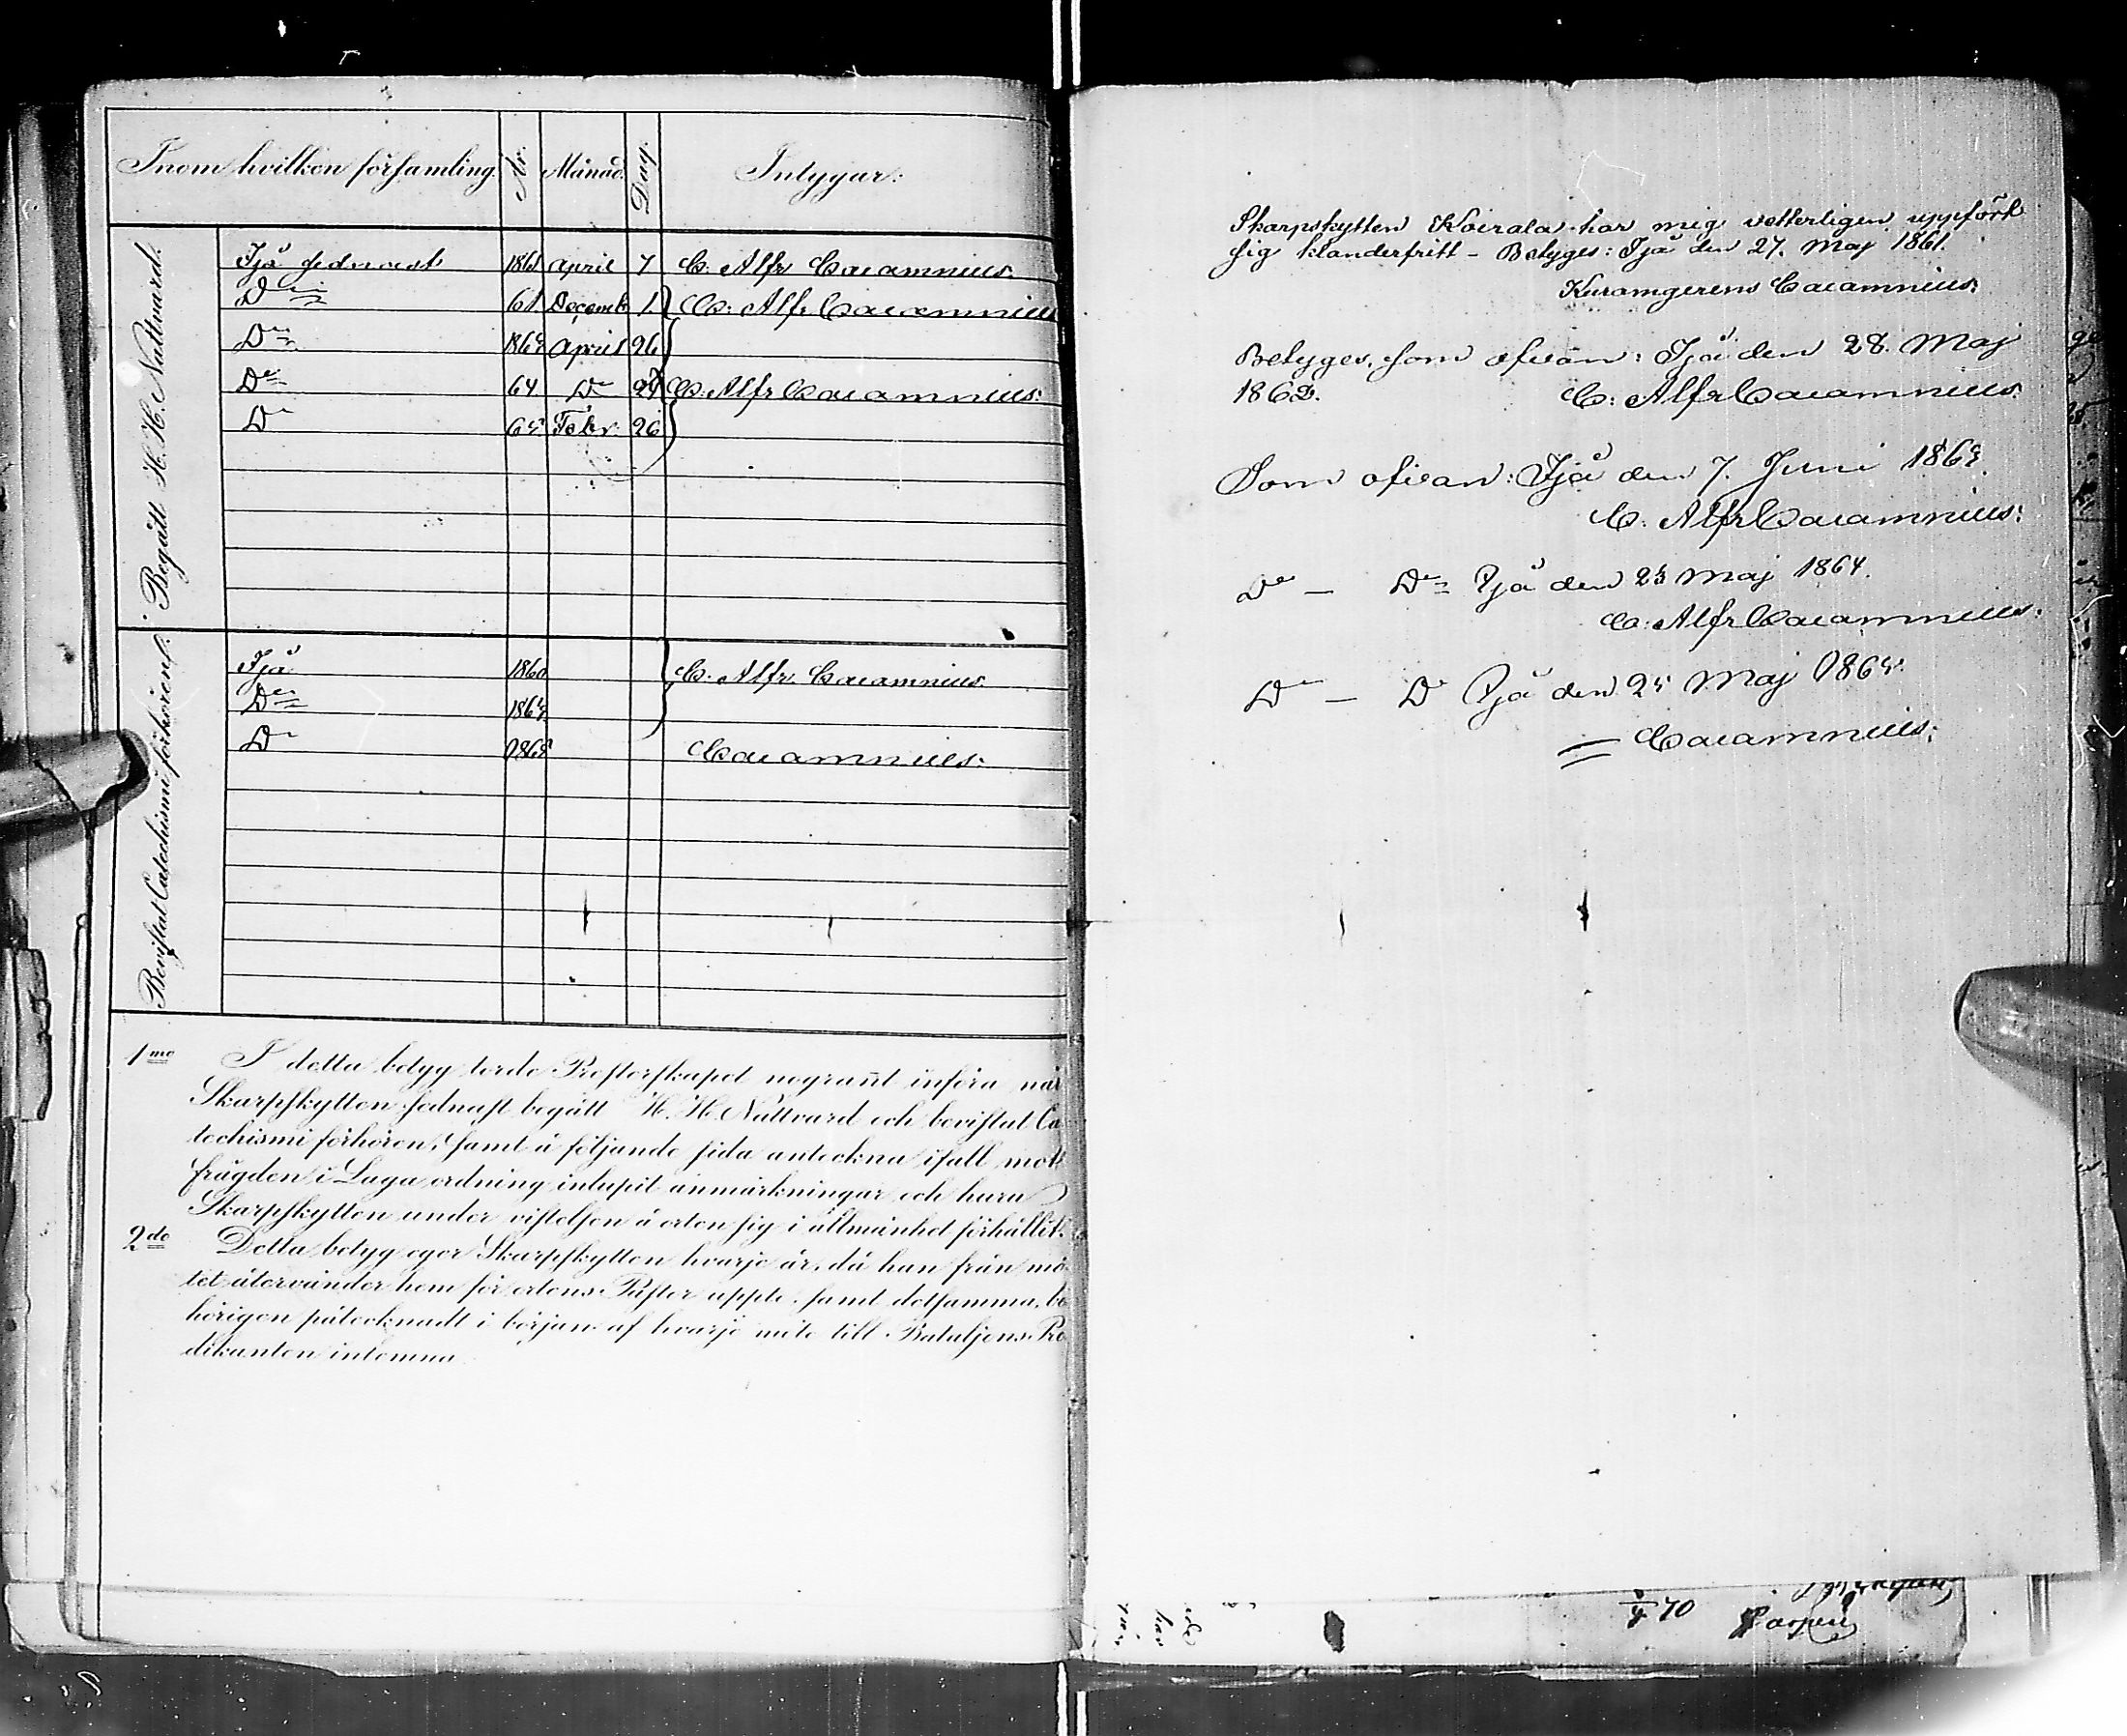 Inom hvilken församling. År. Månad. Dag. Intygar:
Begått H. H. Nattvard:
Ijå sednast 1861 April 7 C. Alfr Cacamnius
Do 61 Decemb 1. C: Alfr Cacamnius
Do 1863 April 26
Do 64 Do C: Alfr Cacamnius:
Do 65 Febr: 26
Bevistat Catechismi förhören:
Ijå 1860 C. Alfr Cacamnius
Do 1863
Do 1865 Cacamnius:
1mo I detta betyg torde Presterskapet nogrannt införa när
Skarpskytten sednast begått H. H. Nattvard och bevistat Ca
techismi förhören, samt å följande sida anteckna ifall mot
frägden i Laga ordning inlupit anmärkningar och huru
Skarpskytten under vistelsen å orten sig i allmänhet förhållit.
2do Detta betyg eger Skarpskytten hvarje år, då han från mö
tet återvänder hem för ortens Pastor uppte, samt detsamma, be
hörigen påtecknadt i början af hvarje möte till Bataljons Pre
dikanten inlemna
Skarpskytten Koirala har mig vetterligen uppfört
sig klanderfritt - Betyges: Ijå den 27. Maj 1861.
Cacamnius:
Betyges, som ofvan: Ijå den 28. Maj
1862. C: Alfr Cacamnius:
Som ofvan: Ijå den 7. Juni 1863.
C: Alfr Cacamnius:
Do - Do Ijå den 23 Maj 1864.
C: Alfr Cacamnius:
Do - Do Ijå den 25 Maj 1865.
Cacamnius:
70